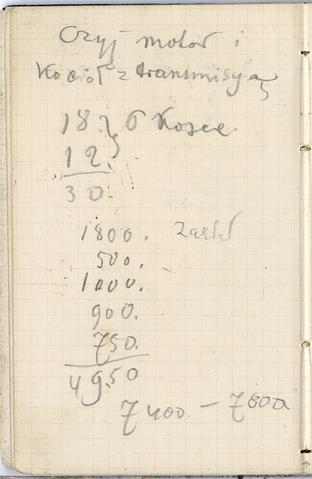 Czyj motor i
Kocioł z transmisyą
18 } 6 Kosce
12.
30.
1800.
500.
1000.
900.
750.
4950
7400 - 7600